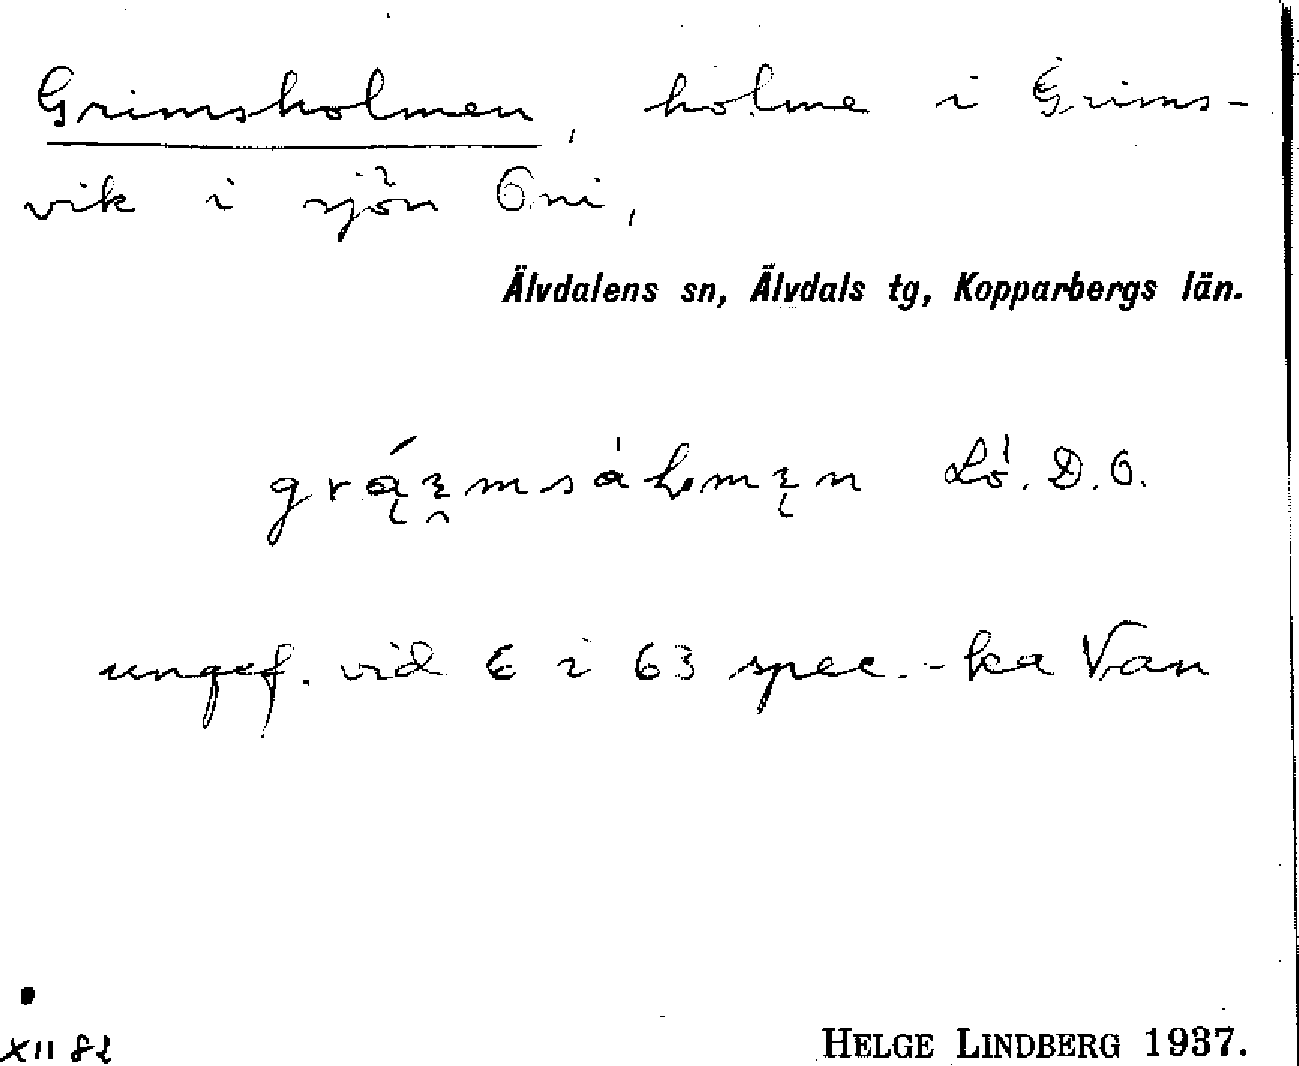 Grimsholmen, holme i Grims-
vik i sjön Oni,
Älvdalens sn, Älvdals tg, Kopparbergs län.
Lö. D.O.
ungef. vid E i 63 spec.-ka Van
XII 82
HELGE LINDBERG 1937.